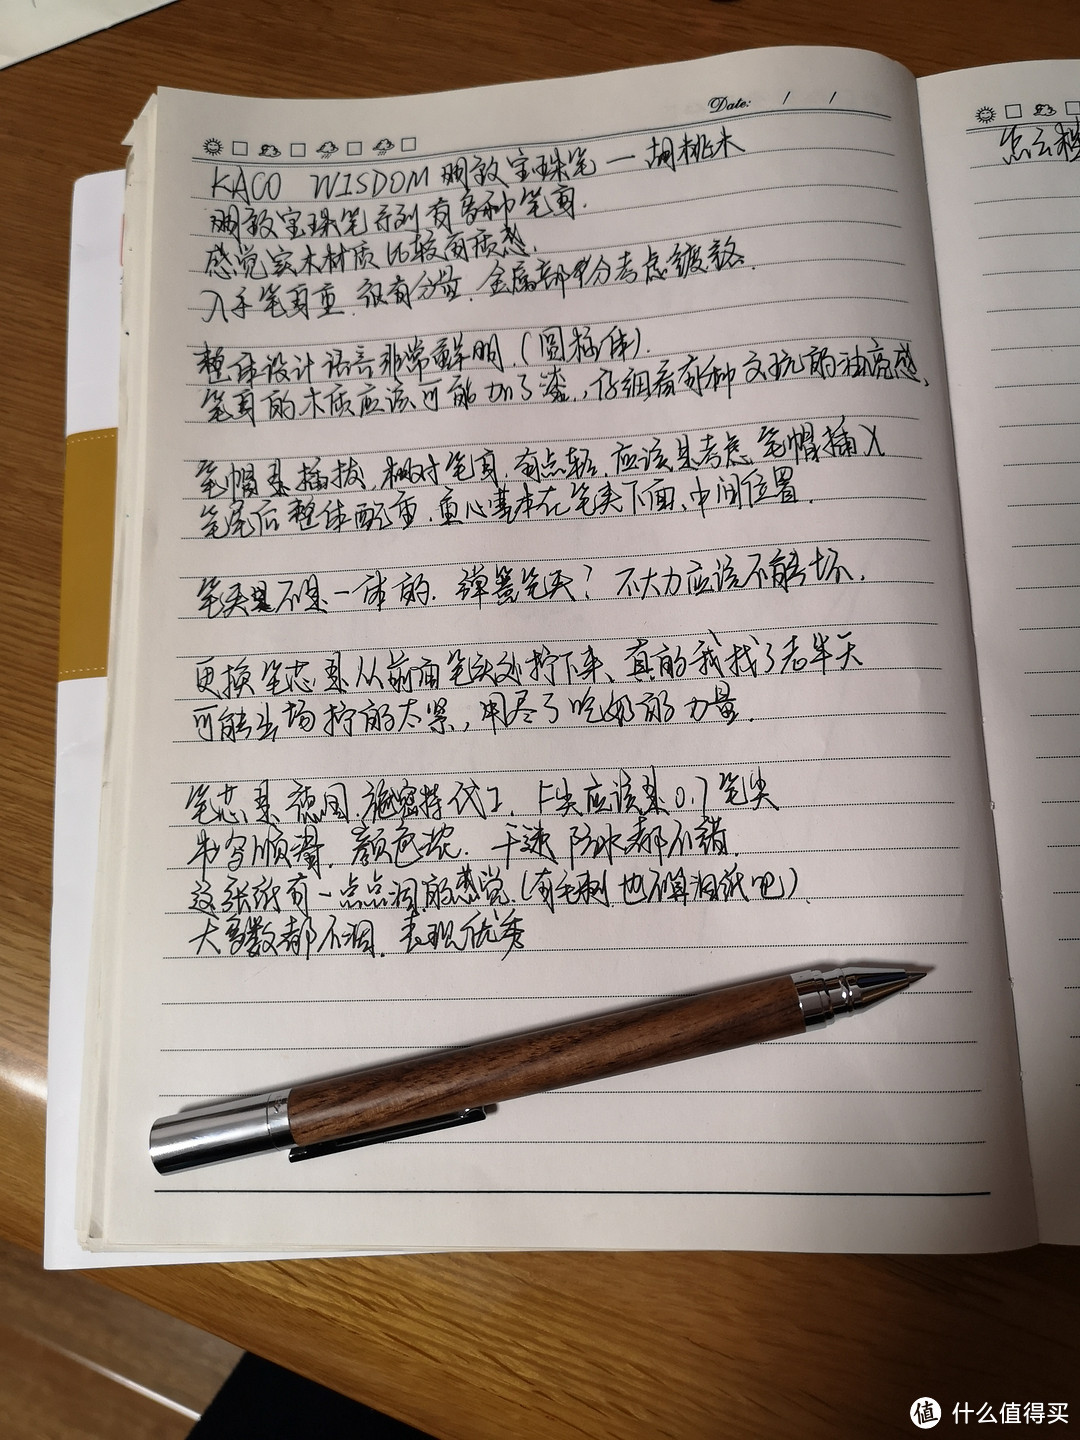 Date: / /
KACO WISDOM 明致宝珠笔一胡桃木
明致宝珠笔系列有多种笔身.
感觉实木材质比较有质感.
入手笔身重.很有分量.金属部分考虑镀铬.
整体设计语言非常鲜明.(圆柱体).
笔身的木质应该可能加了漆.,仔细看有种文玩的油亮感,
笔帽是插拔,相对笔身,有点轻,应该是考虑笔帽插入
笔尾后整体配重.重心基本在笔夹下面、中间位置.
笔夹是不是一体的.弹簧笔夹?不大力应该不能坏.
更换笔芯是从前面笔头处拧下来、真的我找了老半天
可能出场拧的太紧,用尽了吃奶的力量.
笔芯是德国.施密特代工,F尖应该是0.7笔尖
书写顺滑.颜色浓.干速防水都不错.
这张纸有一点点洇的感觉.(有毛刺也不算洇纸吧).
大多数都不洇.表现优秀
怎么
值 什么值得买